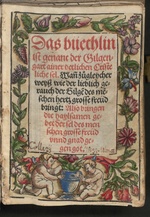 Das buechlin
ist genant der Gilgen
gart einer yetlichen Criste
liche sel. Wañ zůgleycher
weyß wie der lieblich ge
rauch der Gilgẽ des mẽ
schen hertz grosse freud
bringt: Also bringen
die haylsamen ge
bet der sel des men
schen grosse freud
vnnd gnad ge
gen got.